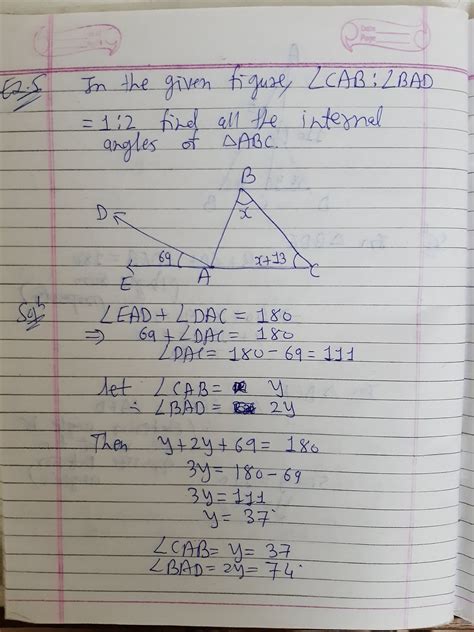 Date
Page
E2.5 In the given figure, ∠CAB : ∠BAD
= 1:2 find all the internal
angles of △ABC.
B
x
D
69
x+13
E
A
C
Solⁿ
∠EAD + ∠DAC = 180
⇒ 69 + ∠DAC = 180
∠DAC = 180 - 69 = 111
Let ∠CAB = y
∴ ∠BAD = 2y
Then y + 2y + 69 = 180
3y = 180 - 69
3y = 111
y = 37
∠CAB = y = 37
∠BAD = 2y = 74